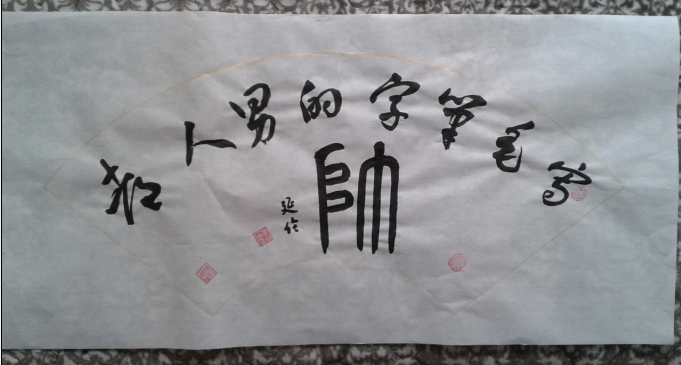 写毛筆字的男人都
帥
延